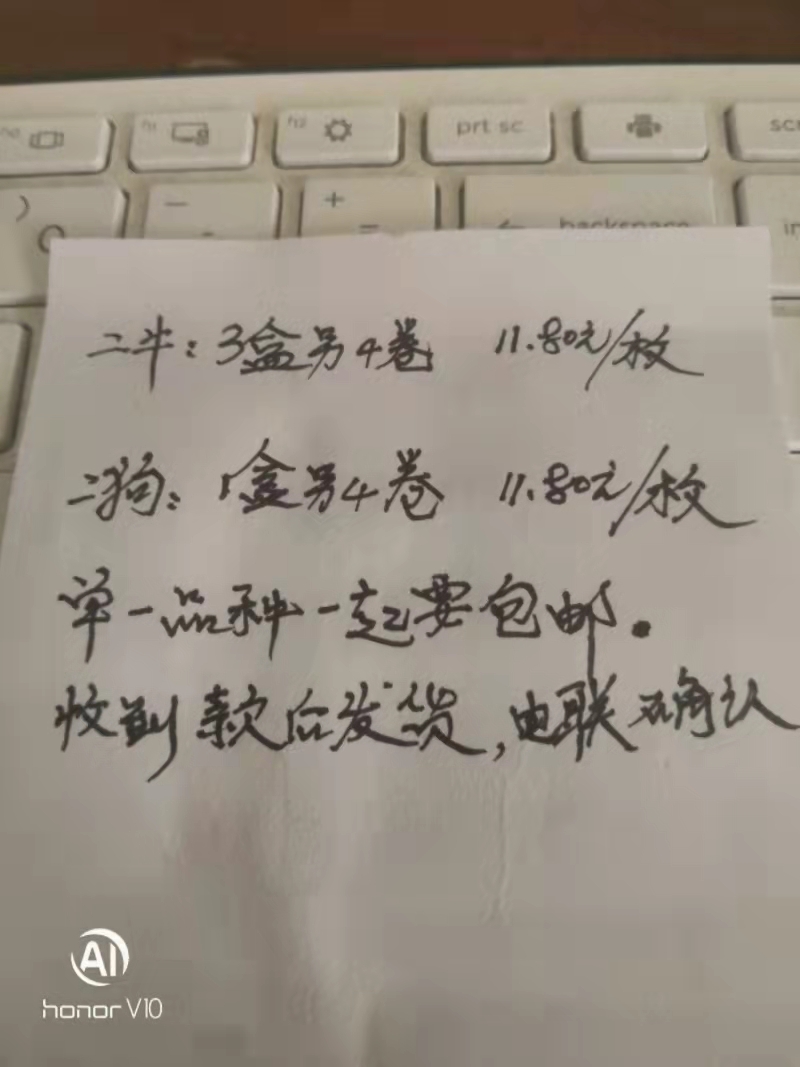 f11
f12
prt sc
)
—
+
=
backspace
二牛：3盒另4卷 11.80元/枚
二狗：1盒另4卷 11.80元/枚
单一品种一起要包邮.
收到款后发货，电联确认
AI
honor V10